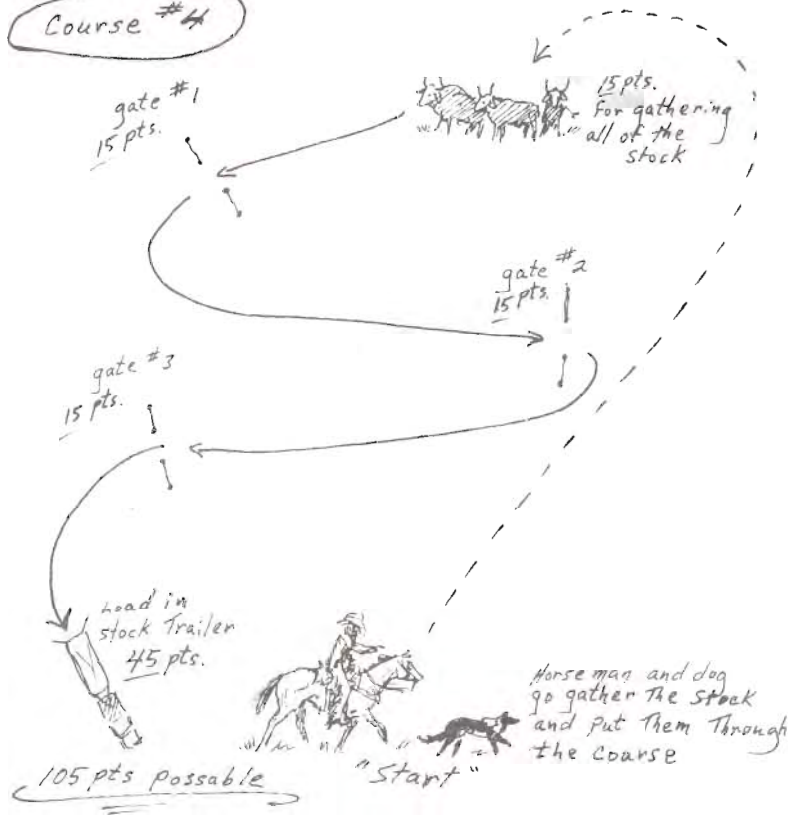 Course #4
gate #1
15 pts.
15 pts.
for gathering
all of the
stock
gate #2
15 pts.
gate #3
15 pts.
Load in
stock Trailer
45 pts.
Horseman and dog
go gather The Stock
and Put Them Through
the Coarse
"Start"
105 pts possable